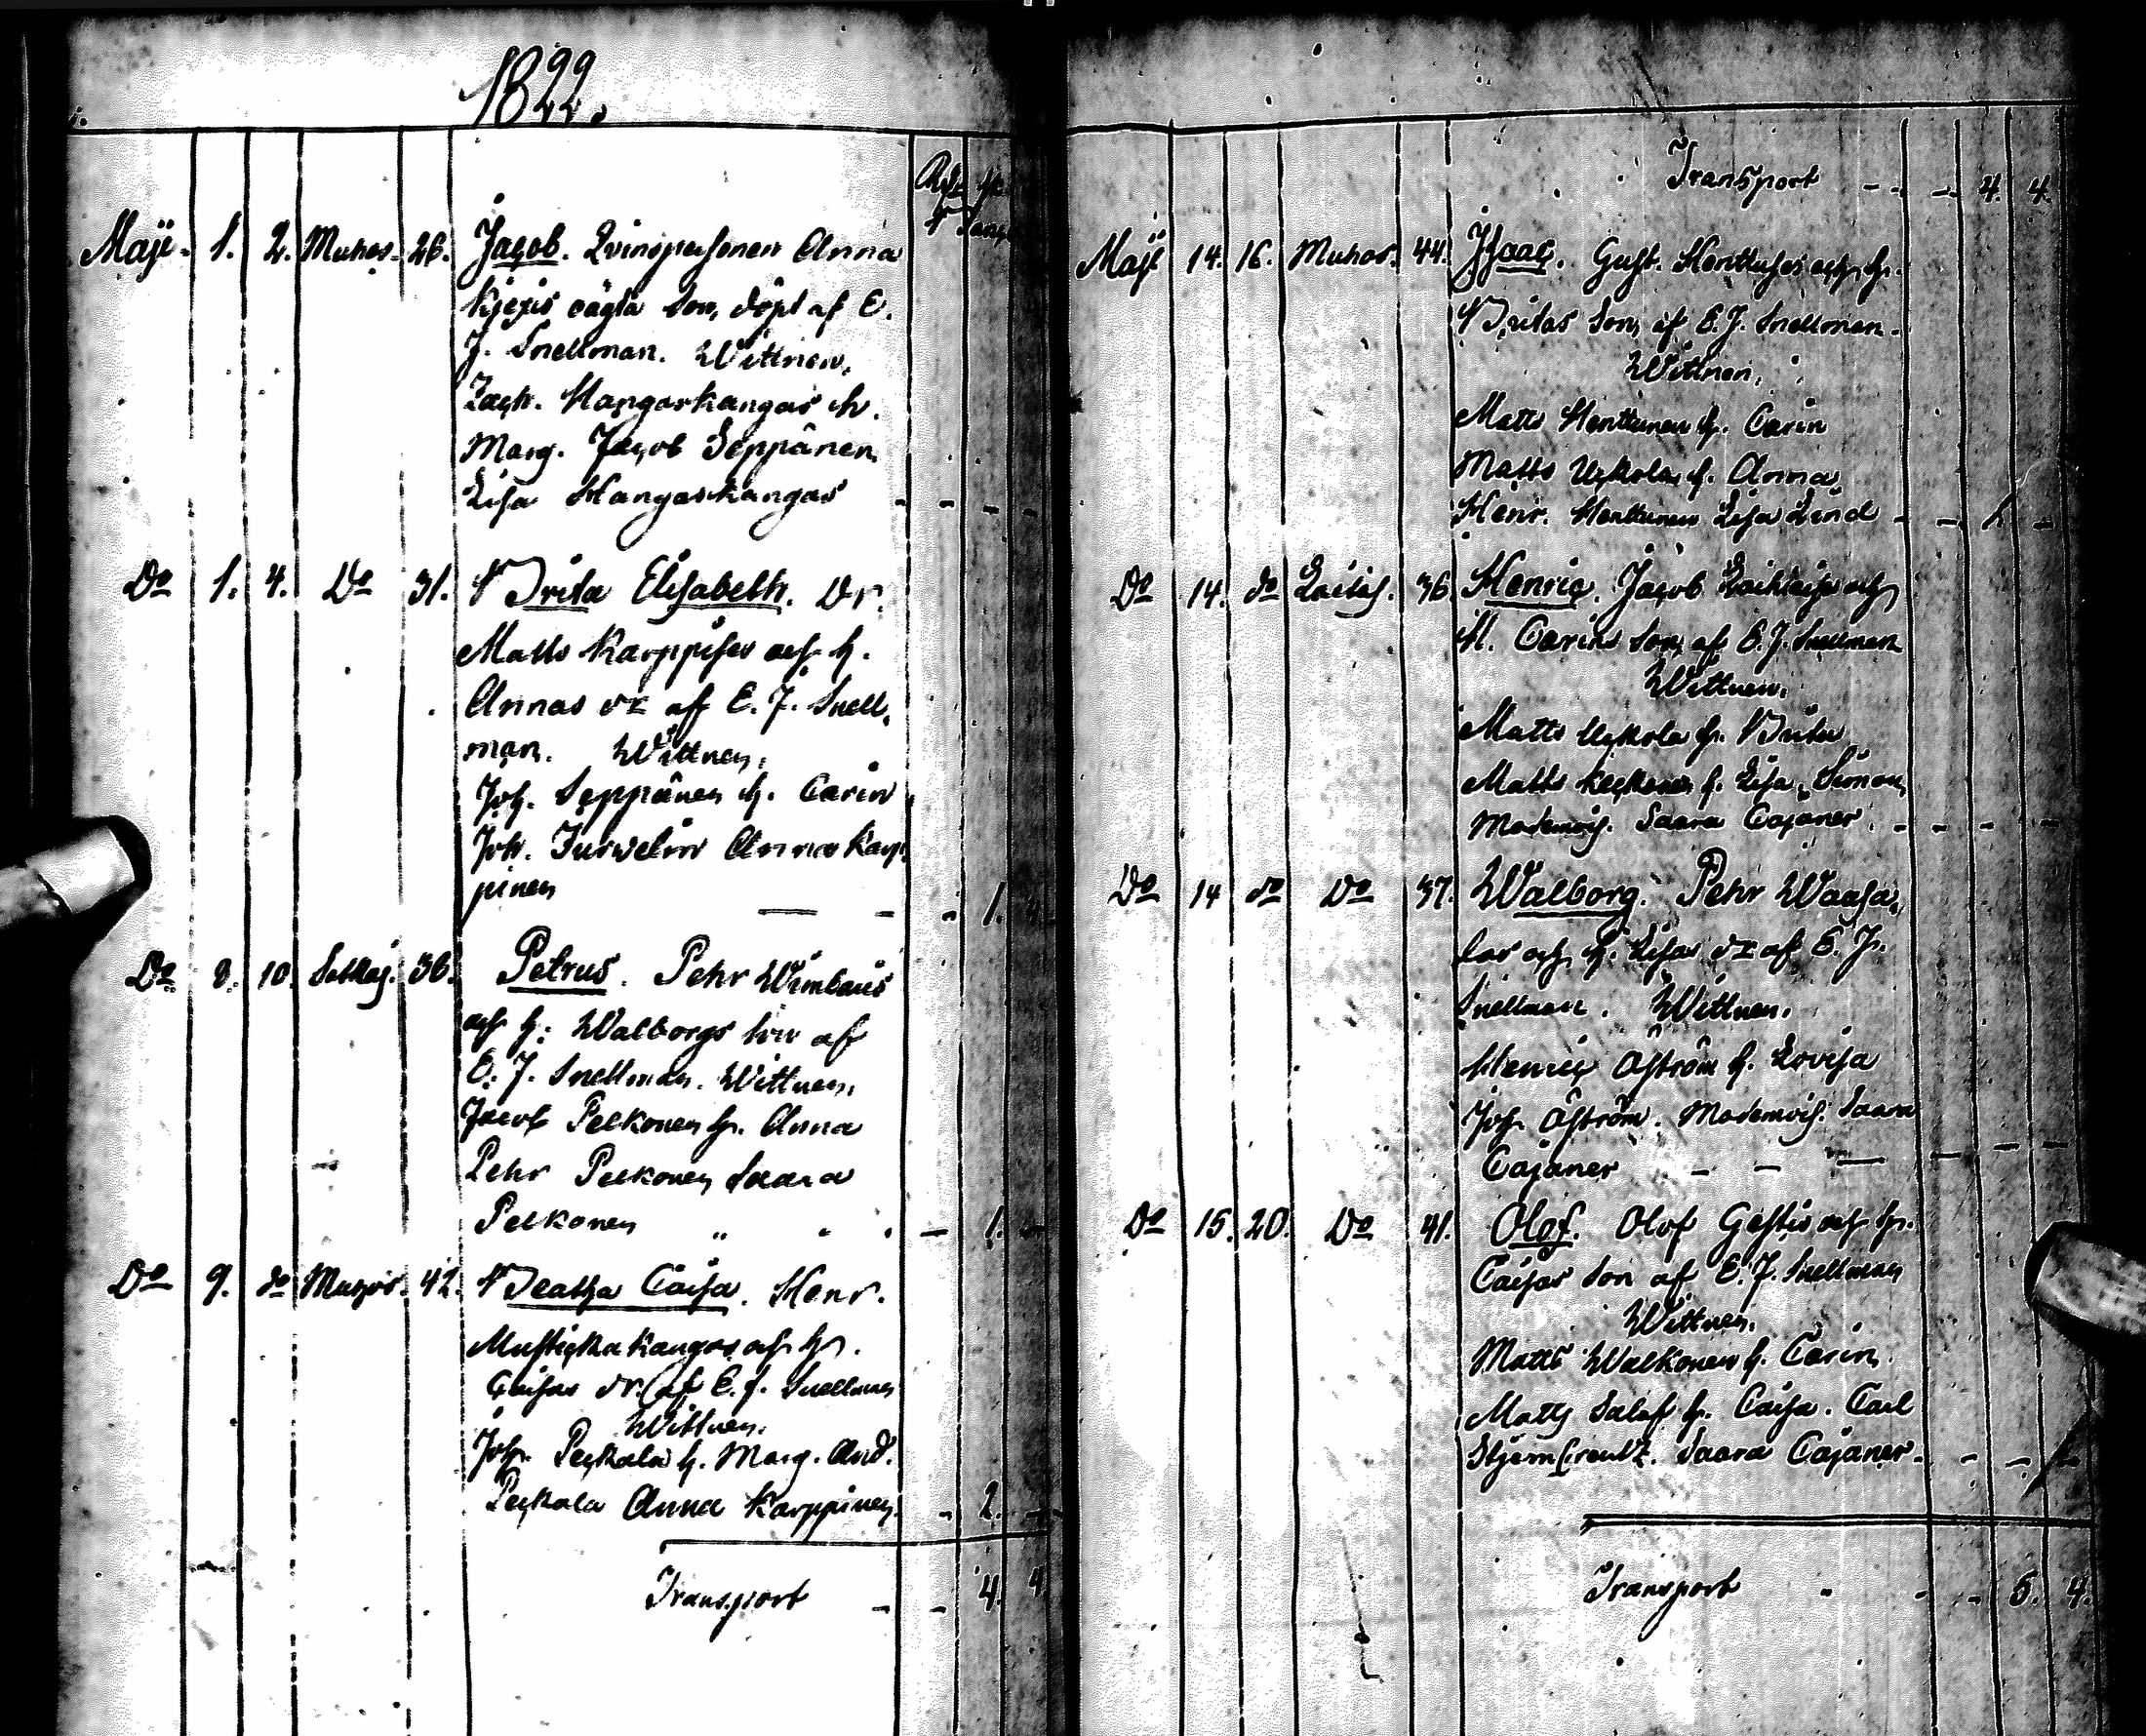 1822.
Maji 1. 2. Muhos. 26. Jacob. Qvinspersonen Anna
Kjexis oägta son, döpt af E.
J. Snellman. Wittnen,
Zach. Hangaskangas h.
Marg. Jacob Seppänen
Lisa Hangaskangas - - - -
Do 1. 4. Do 31. Brita Elisabeth. Dr.
Matts Karppises och h.
Annas dr af E. J. Snell,
man. Wittnen,
Joh. Seppänen h. Carin
Joh. Anna Karp
pinen — - - 1.
Do 8. 10. 36. Petrus. Pehr
och h: Walborgs son af
E. J. Snellman. Wittnen,
Jacob Pelkonen h. Anna
Pehr Pelkonen Saara
Pelkonen „ - 1. -
Do 9. do Muhos. 42. Beatha Caisa. Henr.
Mustickakangas och h.
Caisas dr. af E. J. Snellman
Wittnen.
Joh. Peckala h. Marg. And.
Peckala Anna Karppinen. - 2. -
Transport - - 4. 4
Transport - - - 4. 4.
Maji 14. 16. Muhos. 44. Isaac. Gust. Henttuses och h.
Britas son, af E. J. Snellman.
Wittnen,
Matts Henttunen h. Carin
Matts h. Anna
Henr. Henttunen Lisa Lind - - 1. -
Do 14. do 36. Henric. Jacob och
H. Carins son, af E. J. Snellman
Wittnen,
Matts h. Brita
Matts h. Lisa Simon,
Saara Cajaner. - - - -
Do 14 do Do 37. Walborg. Pehr Waasa,
las och h. Lisas dr af E. J.
Snellman. Wittnen.
Henric Åström h. Lovisa
Joh. Åström. Saara
Cajaner - - — - - -
Do 15. 20. Do 41. Olof. Olof och h.
Caisas son af E. J. Snellman
Wittnen.
Matts Walkonen h. Carin,
Matts h. Caisa. Carl
Stjerncreutz. Saara Cajaner. - - -
Transport - - - 5. 4.